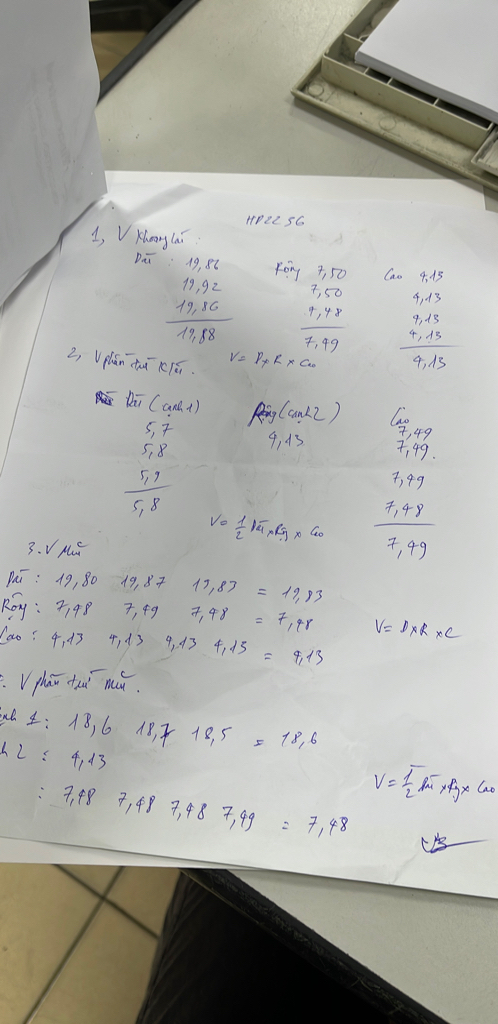 HP2256
1, V Khoang lái :
Dài : 19,86 Rộng 7,50 Cao 4,13
19,92 7,50 4,13
19,86 7,48 4,13
19,88 7,49 4,13
4,13
2, V phần trừ K lái . V = D x R x Cao
Dài (cạnh 1) Rộng (cạnh 2) Cao
5,7 4,13 7,49
5,8 7,49
5,9 7,49
5,8 7,48
V = 1/2 Dài x Rộng x Cao 7,49
3. V Mũi
Dài : 19,80 19,87 19,83 = 19,83
Rộng : 7,48 7,49 7,48 = 7,48
Cao : 4,13 4,13 4,13 4,13 = 4,13 V = D x R x C
V phần trừ mũi .
1 : 18,6 18,7 18,5 = 18,6
2 : 4,13
V = 1/2 Dài x Rộng x Cao
: 7,48 7,48 7,48 7,49 = 7,48